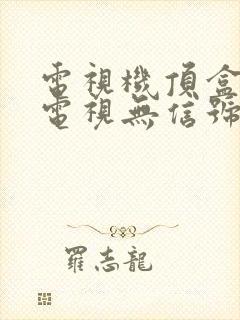 電視機頂盒
電視無信號
羅志龍